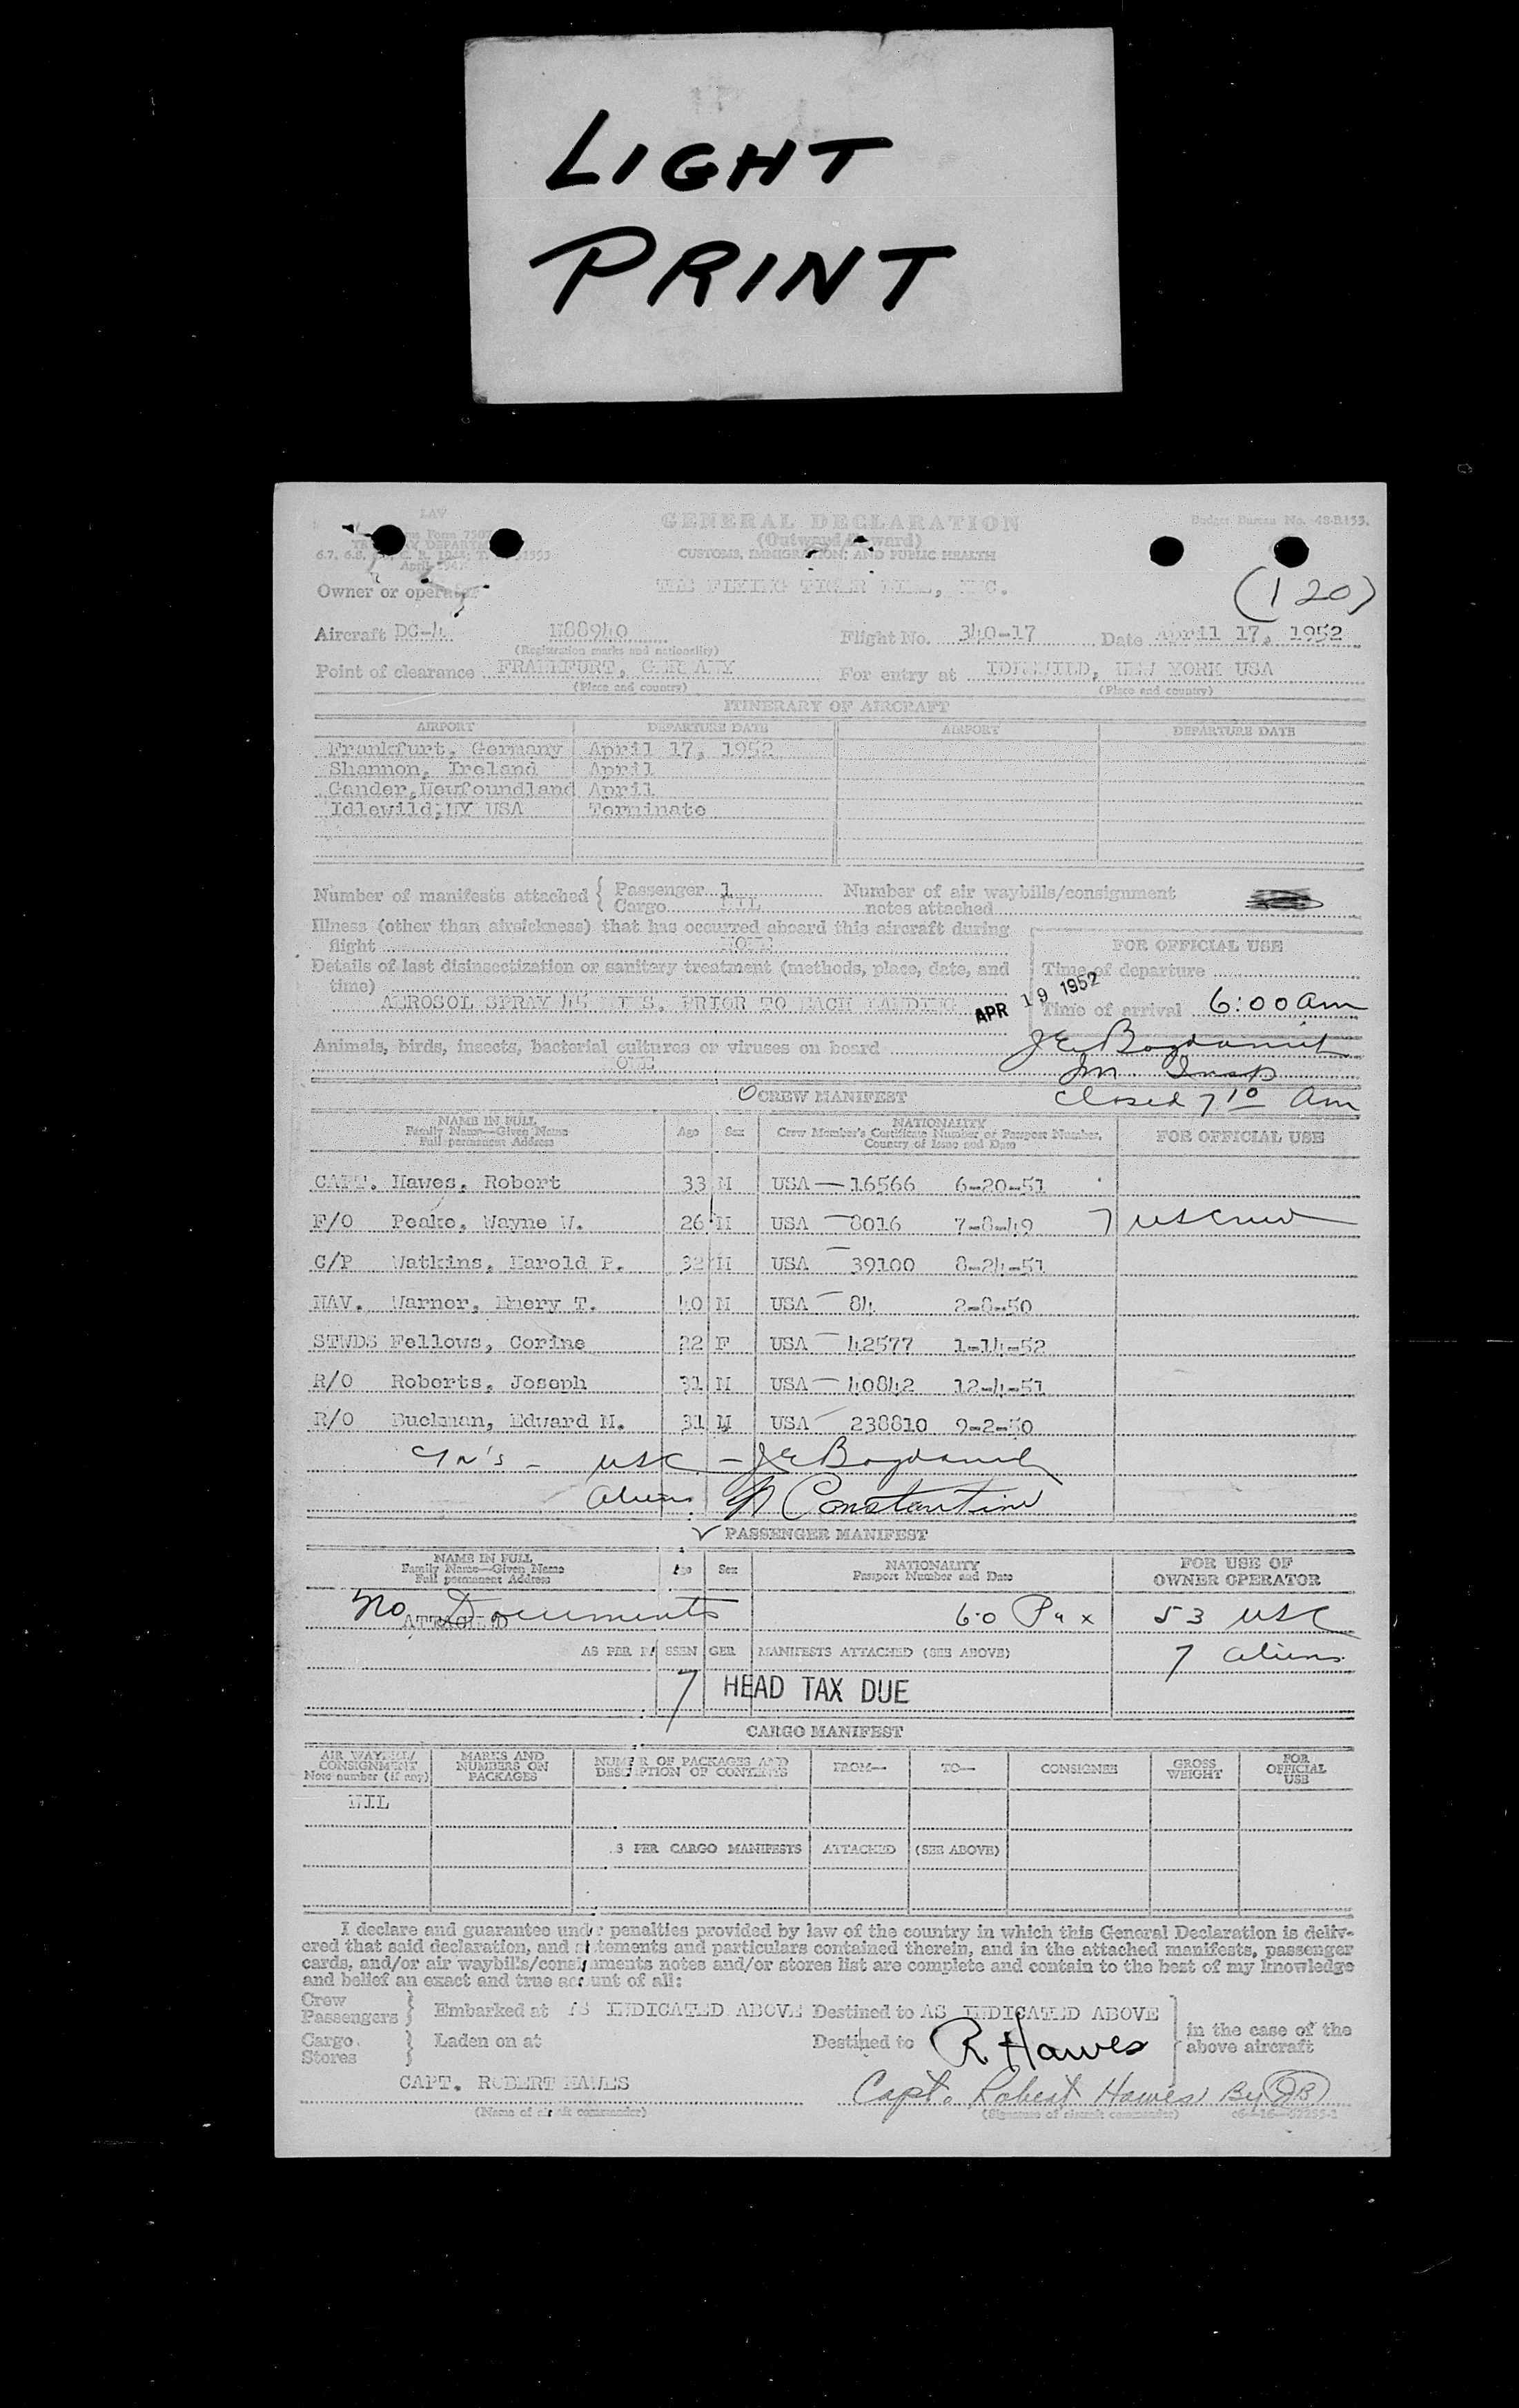 LIGHT
PRINT
GENERAL DECLARATION
(Outward/Inward)
CUSTOMS, IMMIGRATION, AND PUBLIC HEALTH
Budget Bureau No. 48-R155.
April 1947
(120)
Owner or operator THE FLYING TIGER LINE, INC.
Aircraft DC-4 N88940 Flight No. 340-17 Date April 17, 1952
(Registration marks and nationality)
Point of clearance FRANKFURT, GERMANY For entry at IDLEWILD, NEW YORK USA
(Place and country) (Place and country)
ITINERARY OF AIRCRAFT
AIRPORT DEPARTURE DATE AIRPORT DEPARTURE DATE
Frankfurt, Germany April 17, 1952
Shannon, Ireland April
Gander, Newfoundland April
Idlewild, NY USA Terminate
Number of manifests attached { Passenger 1 Number of air waybills/consignment
Cargo NIL notes attached
Illness (other than airsickness) that has occurred aboard this aircraft during
flight NONE
FOR OFFICIAL USE
Details of last disinsectization or sanitary treatment (methods, place, date, and
time)
Time of departure
AEROSOL SPRAY 45 MINS. PRIOR TO EACH LANDING
APR 19 1952
Time of arrival 6:00 am
Animals, birds, insects, bacterial cultures or viruses on board
NONE
Im. Insp
closed 7 10 am
CREW MANIFEST
NAME IN FULL
Family Name—Given Name
Full permanent Address
Age Sex
NATIONALITY
Crew Member's Certificate Number or Passport Number,
Country of Issue and Date
FOR OFFICIAL USE
CAPT. Hawes, Robert 33 M USA — 16566 6-20-51
F/O Peake, Wayne W. 26 M USA — 8016 7-8-49 7 USC crew
C/P Watkins, Harold P. 32 M USA — 39100 8-24-51
NAV. Warner, Emery T. 40 M USA — 84 2-8-50
STWDS Fellows, Corine 22 F USA — 42577 1-14-52
R/O Roberts, Joseph 31 M USA — 40842 12-4-51
R/O Buckman, Edward M. 31 M USA — 238810 9-2-50
USC –
aliens Constantine
PASSENGER MANIFEST
NAME IN FULL
Family Name—Given Name
Full permanent Address
Age Sex
NATIONALITY
Passport Number and Date
FOR USE OF
OWNER OPERATOR
No Documents 60 Pax 53 USC
ATTACHED
AS PER PASSENGER MANIFESTS ATTACHED (SEE ABOVE) 7 aliens
7 HEAD TAX DUE
CARGO MANIFEST
AIR WAYBILL/
CONSIGNMENT
Note number (if any)
MARKS AND
NUMBERS ON
PACKAGES
NUMBER OF PACKAGES AND
DESCRIPTION OF CONTENTS
FROM— TO— CONSIGNEE
GROSS
WEIGHT
FOR
OFFICIAL
USE
NIL
AS PER CARGO MANIFESTS ATTACHED (SEE ABOVE)
I declare and guarantee under penalties provided by law of the country in which this General Declaration is deliv-
ered that said declaration, and statements and particulars contained therein, and in the attached manifests, passenger
cards, and/or air waybills/consignments notes and/or stores list are complete and contain to the best of my knowledge
and belief an exact and true account of all:
Crew
Passengers } Embarked at AS INDICATED ABOVE Destined to AS INDICATED ABOVE
Cargo
Stores } Laden on at Destined to R Hawes
in the case of the
above aircraft
CAPT. ROBERT HAWES Capt. Robert Hawes By JB
(Name of aircraft commander) (Signature of aircraft commander)